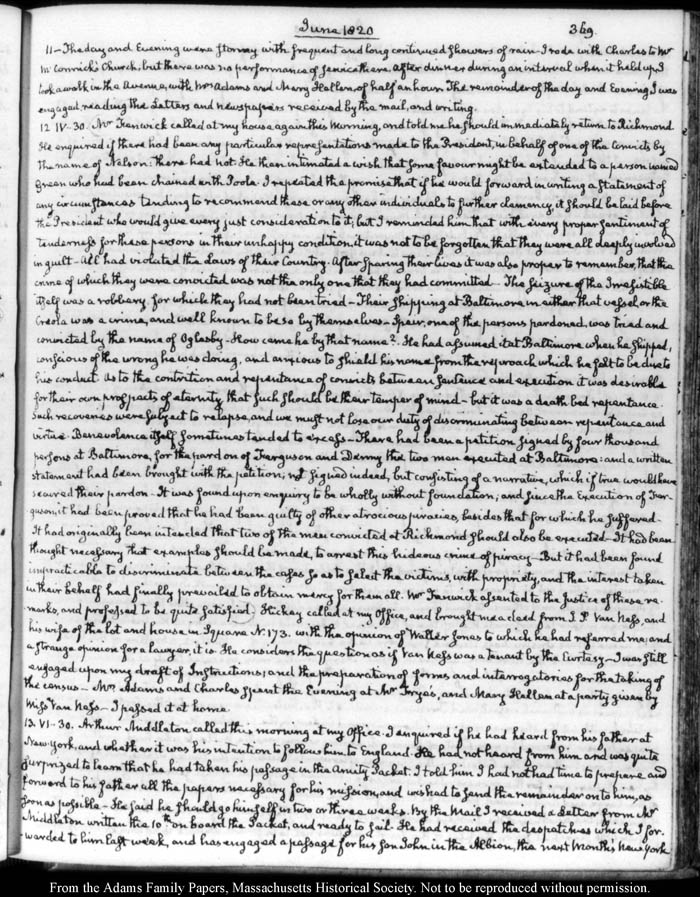 June 1820
369.
11 — The day and Evening were stormy with frequent and long continued showers of rain. I rode with Charles to Mr
McCormick's Church, but there was no performance of service there. After dinner during an interval when it held up, I
took a walk in the Avenue, with Mrs Adams and Mary Hellen, of half an hour. The remainder of the day and Evening I was
engaged, reading the Letters and newspapers received by the mail, and writing.
12. IV-30. Mr Fenwick called at my house again this Morning, and told me he should immediately return to Richmond
He enquired if there had been any particular representations made to the President, in behalf of one of the Convicts by
the name of Nelson: there had not. He then intimated a wish that some favour might be extended to a person named
Green who had been chained with Poole. I repeated the promise that if he would forward in writing a statement of
any circumstances tending to recommend these or any other individuals to further clemency, it should be laid before
the President who would give every just consideration to it; but I reminded him that with every proper sentiment of
tenderness for these persons in their unhappy condition, it was not to be forgotten that they were all deeply involved
in guilt — All had violated the Laws of their Country. After sparing their lives it was also proper to remember, that the
crime of which they were convicted was not the only one that they had committed — The seizure of the Irresistible
itself was a robbery, for which they had not been tried — Their shipping at Baltimore in either that vessel, or the
Creola was a crime, and well known to be so by themselves — Spear, one of the persons pardoned, was tried and
convicted by the name of Oglesby — How came he by that name? He had assumed it at Baltimore when he shipped,
conscious of the wrong he was doing, and anxious to shield his name from the reproach which he felt to be due to
his conduct. As to the contrition and repentance of convicts between sentence and execution it was desirable
for their own prospects of eternity that such should be their temper of mind — but it was a death bed repentance.
Such recoveries were subject to relapse, and we must not lose our duty of discriminating between repentance and
virtue. Benevolence itself sometimes tended to excess — There had been a petition signed by four thousand
persons at Baltimore, for the pardon of Ferguson and Denny the two men executed at Baltimore: and a written
statement had been brought with the petition; not signed indeed, but consisting of a narrative, which if true would have
secured their pardon — It was found upon enquiry to be wholly without foundation; and since the execution of Fer-
guson, it had been proved that he had been guilty of other atrocious piracies, besides that for which he suffered —
It had originally been intended that two of the men convicted at Richmond should also be executed — It had been
thought necessary that examples should be made, to arrest this hideous crime of piracy — But it had been found
impracticable to discriminate between the cases so as to select the victims, with propriety, and the interest taken
in their behalf had finally prevailed to obtain mercy for them all. Mr Fenwick assented to the justice of these re-
marks, and professed to be quite satisfied. Hickey called at my Office, and brought me a deed from J. P. Van Ness, and
his wife of the lot and house in Square N. 173. with the opinion of Walter Jones to which he had referred me; and
a strange opinion for a lawyer, it is. He considers the question as if Van Ness was a tenant by the Curtesy — I was still
engaged upon my draft of Instructions; and the preparation of forms and interrogatories for the taking of
the census — Mrs Adams and Charles spent the Evening at Mr Frye's, and Mary Hellen at a party given by
Miss Van Ness — I passed it at home.
13. VI-30. Arthur Middleton called this morning at my Office. I enquired if he had heard from his father at
New York, and whether it was his intention to follow him to England. He had not heard from him and was quite
surprized to learn that he had taken his passage in the Amity Packet. I told him I had not had time to prepare and
forward to his father all the papers necessary for his mission, and wished to send the remainder on to him, as
soon as possible — He said he should go himself in two or three weeks. By the Mail I received a Letter from Mr
Middleton written the 10th on board the Packet, and ready to sail. He had received the despatches which I for-
warded to him last week, and has engaged a passage for his son John in the Albion, the next Month's New York
From the Adams Family Papers, Massachusetts Historical Society. Not to be reproduced without permission.